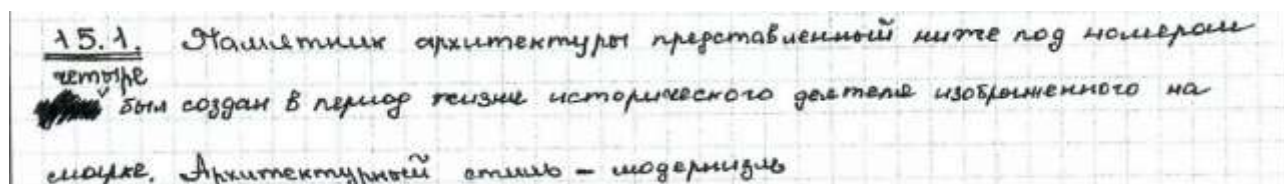 15.1. Памятник архитектуры представленный ниже под номером
четыре
был создан в период жизни исторического деятеля изображенного на
марке. Архитектурный стиль – модернизм